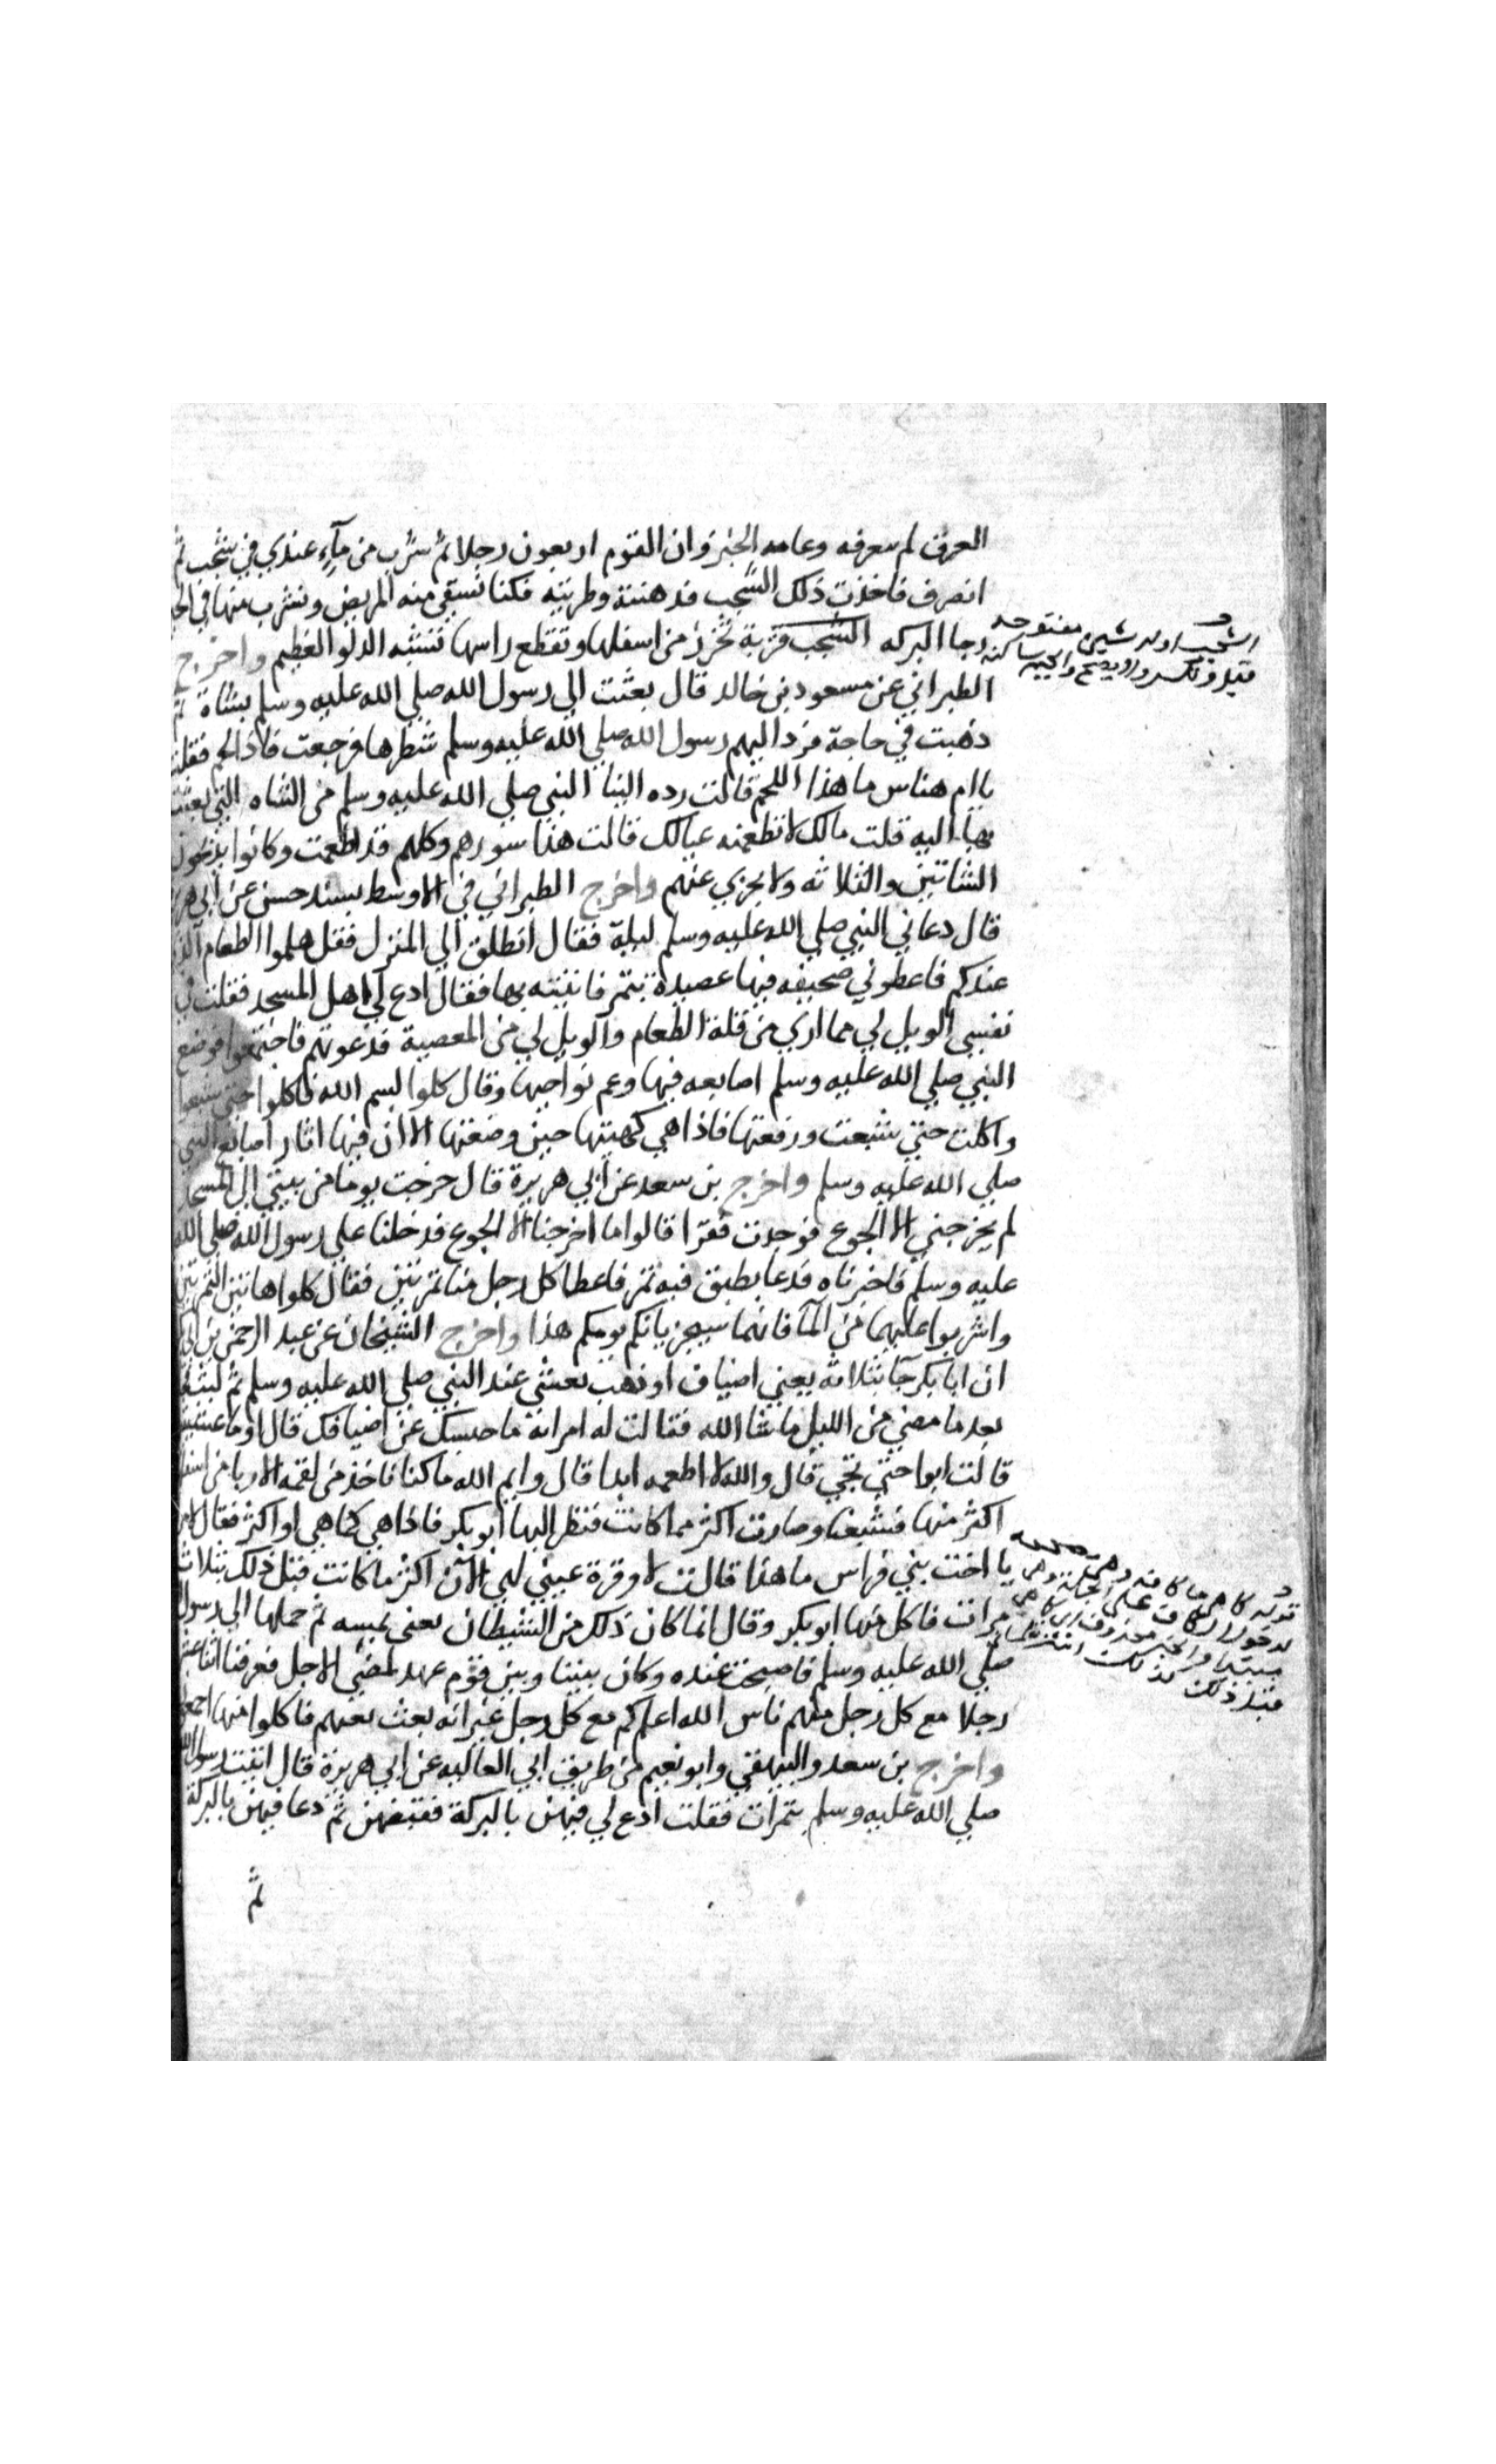 العرق لم يعرقه وعامه الخبز وان القوم اربعون رجلا ثم شرب من مآء عندي في شجب ثم
انصرف فاخذت ذلك الشجب فدهنته وطويته فكنا نسقي منه المريض ونشرب منها في
رجا البركه الشجب قربة تخرز من اسفلها وتقطع راسها تشبه الدلو العظيم واخرج
الطبراني عن مسعود بن خالد قال بعثت الي رسول الله صلي الله عليه وسلم بشاة ثم
ذهبت في حاجة فرد اليهم رسول الله صلي الله عليه وسلم شطرها فرجعت فاذا لحم فقلت
يا ام هناس ما هذا اللحم قالت رده الينا النبي صلي الله عليه وسلم من الشاه التي بعثت
بها اليه قلت مالك لا تطعمنه عيالك قالت هذا سورهم وكلهم قد اطعمت وكانوا يذبحون
الشاتين والثلاثه ولا يجزي عنهم واخرج الطبراني في الاوسط بسند حسن عن ابي
قال دعاني النبي صلي الله عليه وسلم ليلة فقال انطلق الي المنزل فقل هلموا الطعام
عندكم فاعطوني صحيفه فيها عصيدة بتمر فاتيته بها فقال ادع لي اهل المسجد فقلت في
نفسي الويل لي مما اري من قلة الطعام والويل لي من المعصية فدعوتهم فاجتمعوا فوضع
النبي صلي الله عليه وسلم اصابعه فيها وعم نواحيها وقال كلوا بسم الله فاكلوا حتي شبعوا
واكلت حتي شبعت ورفعتها فاذا هي كهيئتها حين وضعتها الا ان فيها اثار اصابع النبي
صلي الله عليه وسلم واخرج بن سعد عن ابي هريرة قال خرجت يوما من بيتي الي المسجد
لم يخرجني الا الجوع فوجدت نفرا قالوا ما اخرجنا الا الجوع فدخلنا علي رسول الله صلي الله
عليه وسلم فاخبرناه فدعا بطبق فيه تمر فاعطا كل رجل منا تمرتين فقال كلوا هاتين التمرتين
واشربوا عليهما من المآ فانهما سيجزيانكم يومكم هذا واخرج الشيخان عن عبد الرحمن بن
ان ابا بكر جآ بثلاثه يعني اضياف او ذهب بعشي عند النبي صلي الله عليه وسلم ثم لبث
بعد ما مضي من الليل ما شا الله فقالت له امراته ما حبسك عن اضيافك قال اوما عشيتيهم
قالت ابوا حتي تجي قال والله لا اطعمه ابدا قال وايم الله ما كنا ناخذ من لقمه الا ربا من
اكثر منها فشبعنا وصارت اكثر مما كانت فنظر اليها ابو بكر فاذا هي كما هي او اكثر فقال
يا اخت بني فراس ما هذا قالت لا وقرة عيني لهي الآن اكثر ما كانت قبل ذلك بثلاث
مرات فاكل منها ابو بكر وقال انما كان ذلك من الشيطان يعني يمينه ثم حملها الي رسول
صلي الله عليه وسلم فاصبحت عنده وكان بيننا وبين قوم عهد لمضي الاجل فعرفنا اثنا عشر
رجلا مع كل رجل منهم ناس الله اعلم كم مع كل رجل غير انه بعث معهم فاكلوا منها اجمعون
واخرج بن سعد والبيهقي وابو نعيم من طريق ابي العاليه عن ابي هريرة قال اتيت رسول الله
صلي الله عليه وسلم بتمرات فقلت ادع لي فيهن بالبركة فقبضهن ثم دعا فيهن بالبركة
ثم
الشجب اوله شين مفتوحه
والجيم ساكنه
قوله كما هي ما كافه وهي
لدخول الكاف علي الجملة وهي
مبتدا والخبر محذوف اي كما هي
قبل ذلك